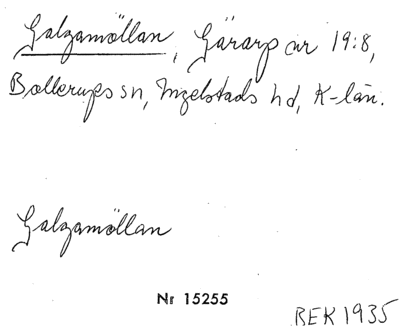 Galzamöllan, Gärarp nr 19:8,
Bollerups sn, Ingelstads hd, K-län.
Galzamöllan
Nr 15255
BEK 1935